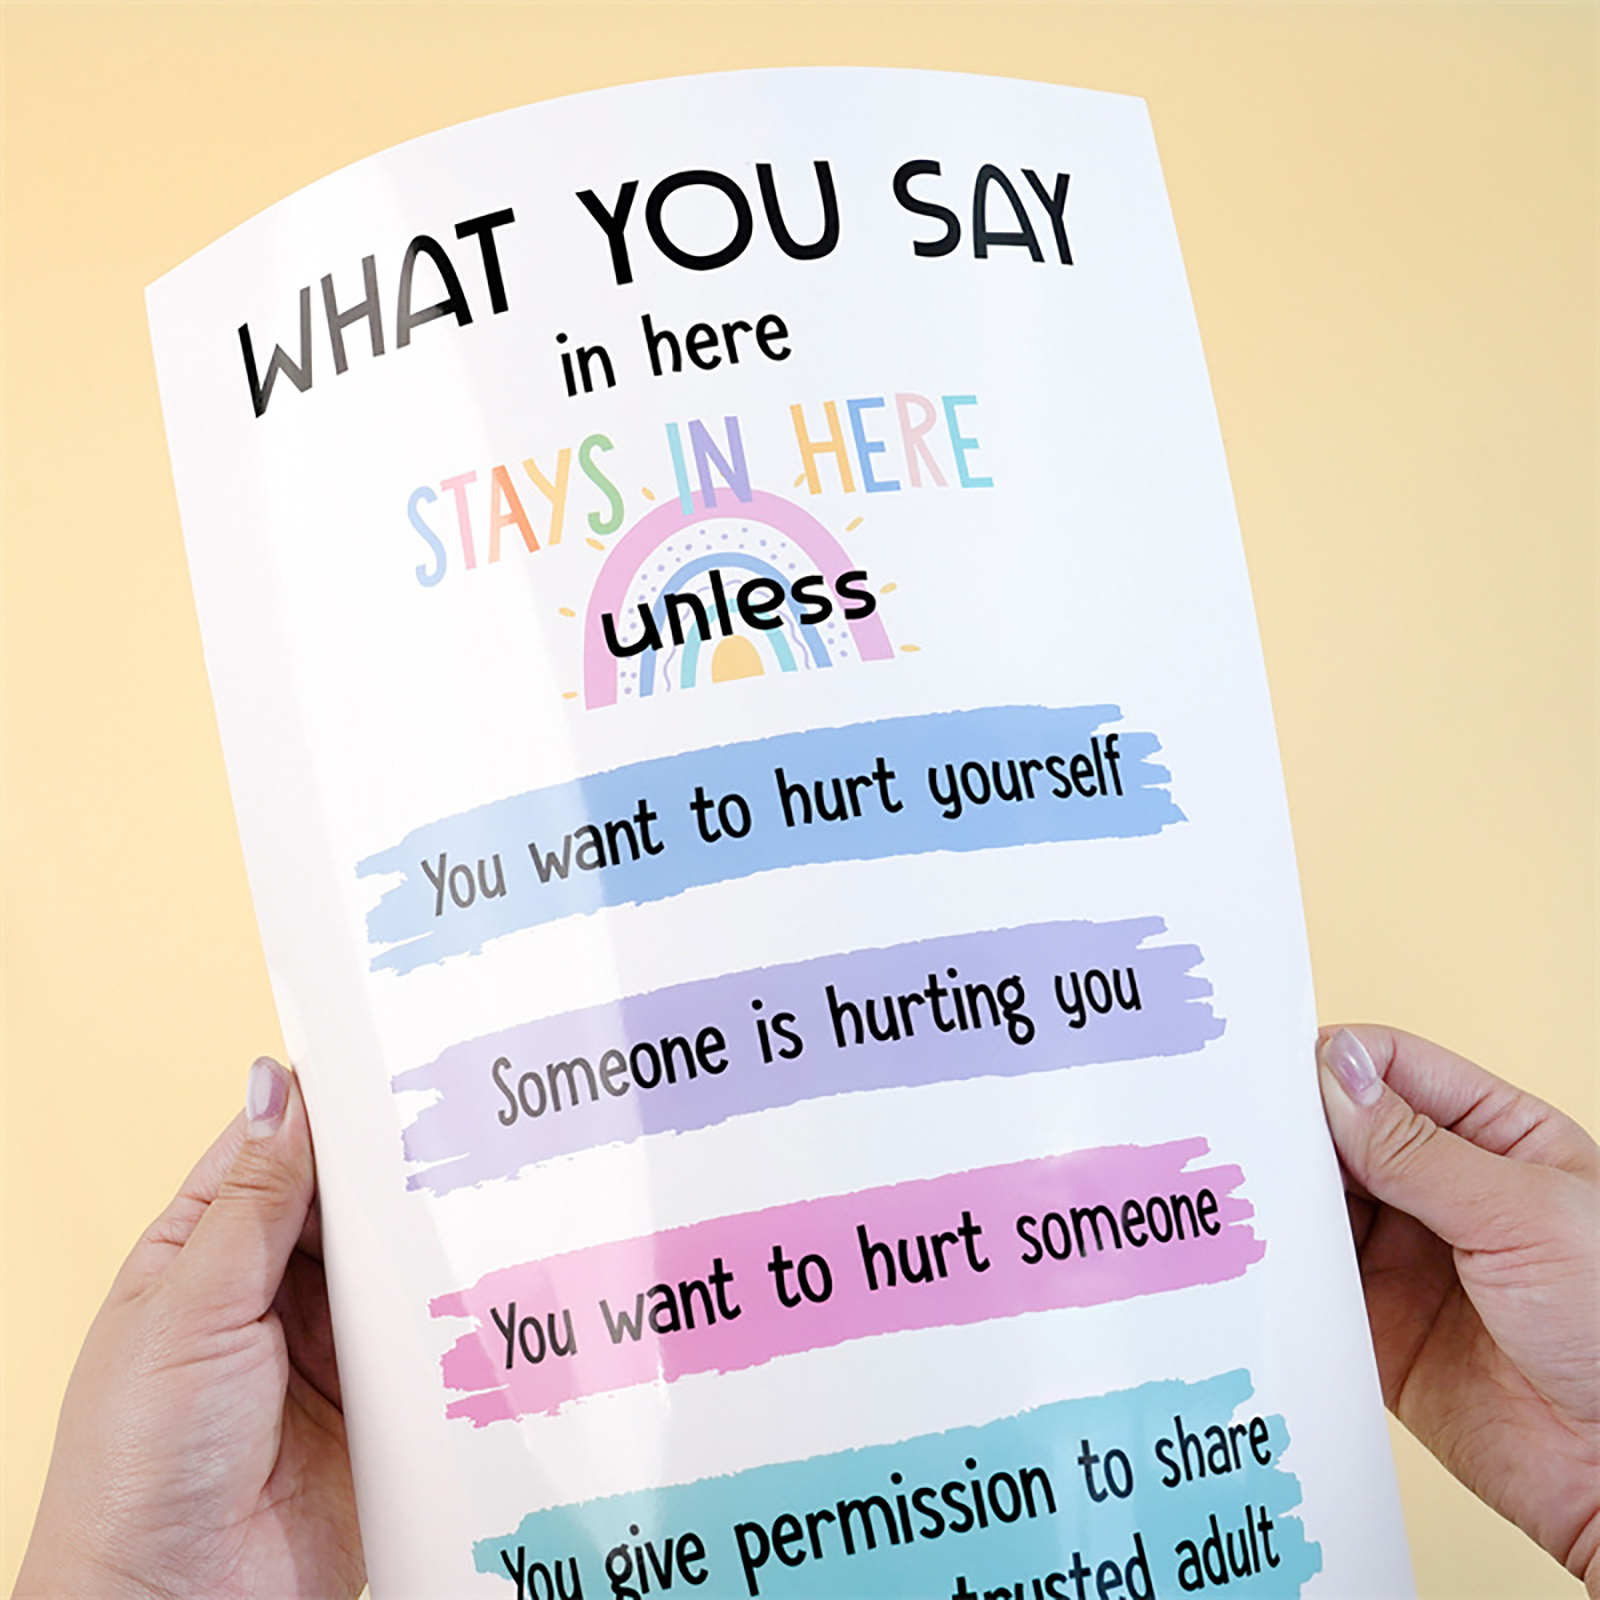 WHAT YOU SAY
in here
STAYS IN HERE
unless
You want to hurt yourself
Someone is hurting you
You want to hurt someone
You give permission to share
trusted adult